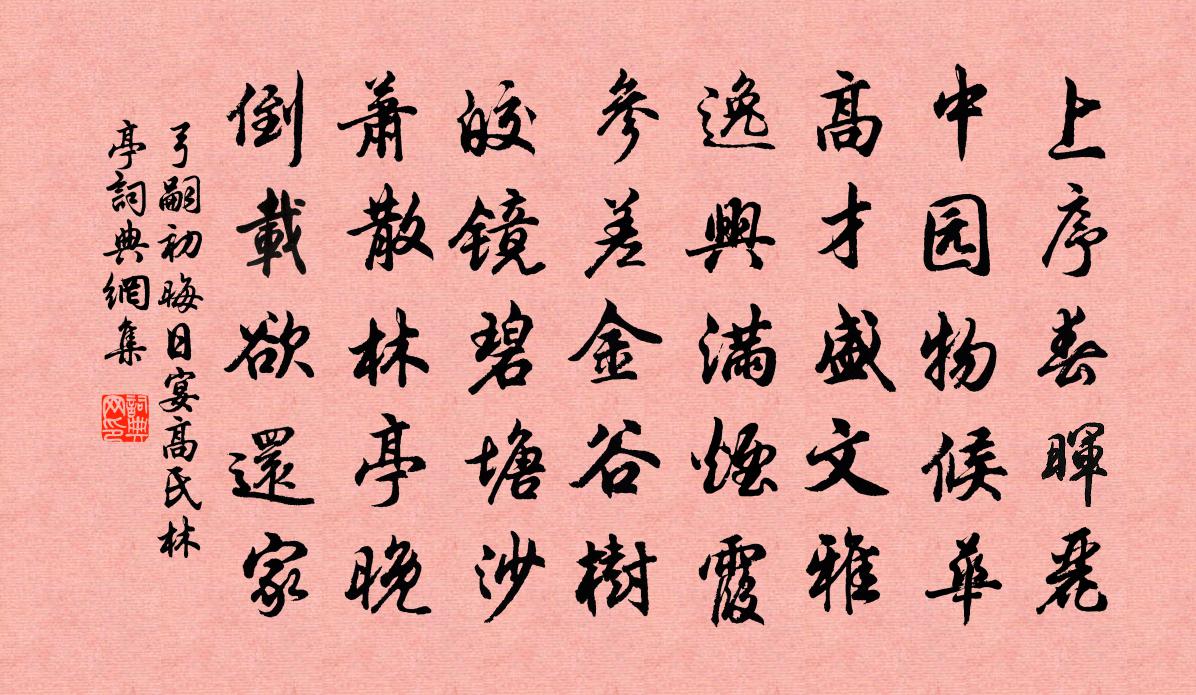 上序春暉麗
中园物候華
高才盛文雅
逸興滿煙霞
參差金谷樹
皎镜碧塘沙
蕭散林亭晚
倒載欲還家
弓嗣初晦日宴高氏林
亭詞典網集
詞典网印